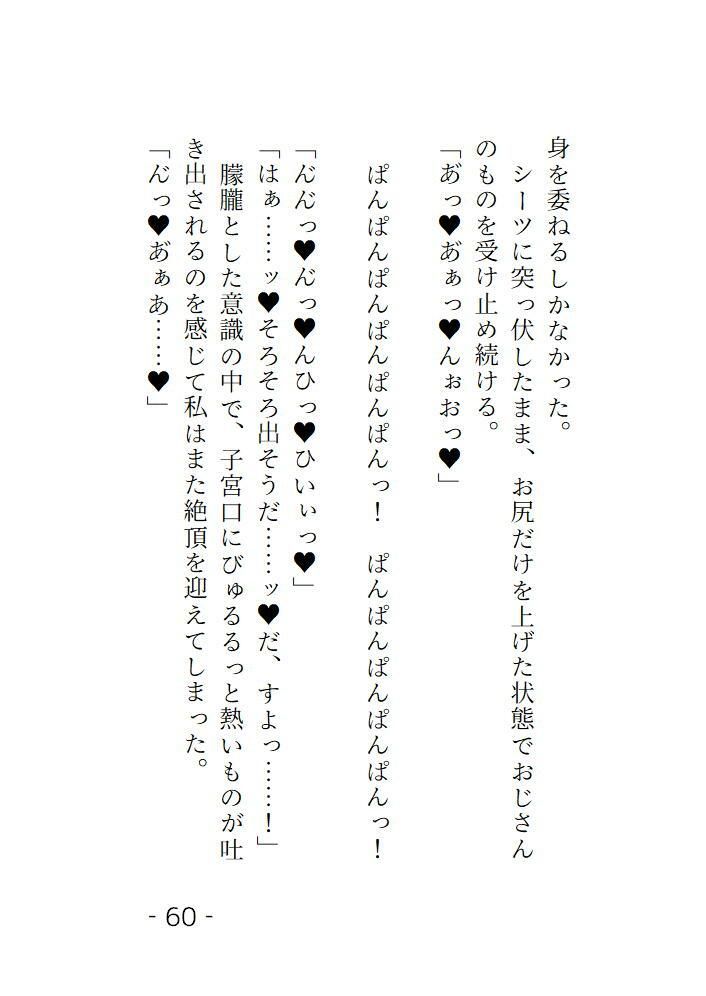 身を委ねるしかなかった。
シーツに突っ伏したまま、お尻だけを上げた状態でおじさん
のものを受け止め続ける。
「あ゙っ♥あ゙ぁっ♥んぉおっ♥」
ぱんぱんぱんぱんぱんぱんっ！　ぱんぱんぱんぱんぱんっ！
「ん゙ん゙っ♥ん゙っ♥んひっ♥ひいぃっ♥」
「はぁ……ッ♥そろそろ出そうだ……ッ♥だ、すよっ……！」
朦朧とした意識の中で、子宮口にびゅるるっと熱いものが吐
き出されるのを感じて私はまた絶頂を迎えてしまった。
「ん゙っ♥あ゙ぁあ……♥」
- 60 -